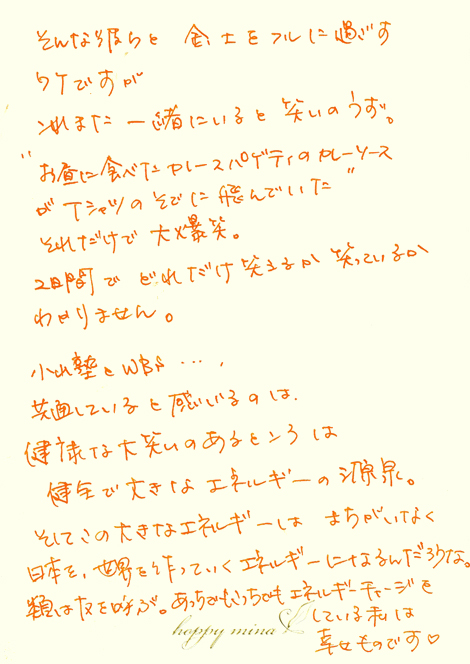 そんな彼らと 金、土をフルに過ごす
ワケですが
これまた 一緒にいると 笑いのうず。
"お昼に食べたカレースパゲティのカレーソース
がTシャツのそでに飛んでいた"
それだけで 大爆笑。
2日間で どれだけ笑えるか 笑っているか
わかりません。
小山塾とWBS ‥‥
共通していると感じいるのは、
健康な大笑いのあるところは
健全で大きなエネルギーの源泉。
そしてこの大きなエネルギーは まちがいなく
日本を、世界を作っていくエネルギーになるんだろうな。
類は友を呼ぶ。あっちでもこっちでもエネルギーチャージを
している私は
幸せものです♡
happy mina